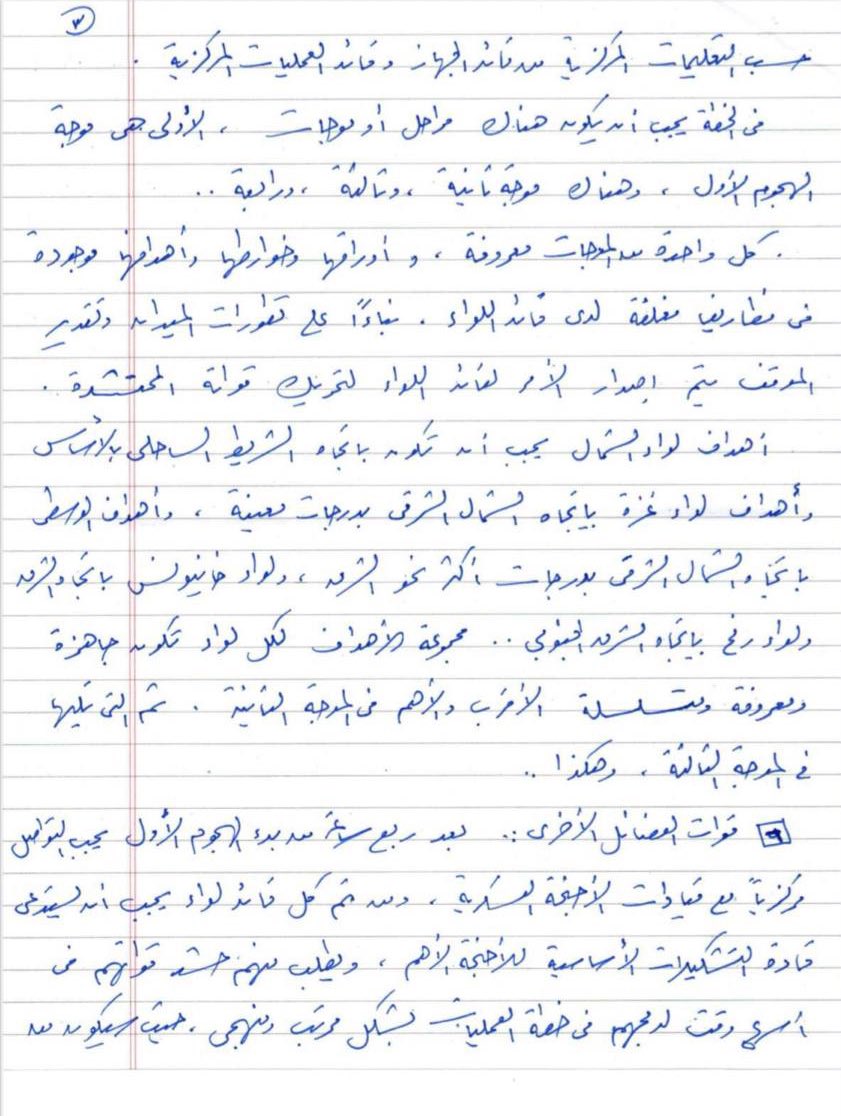 ٣
حسب التعليمات المركزية من قائد الجهاز وقائد العمليات المركزية .
في الخطة يجب أن يكون هناك مراحل أو موجات ، الأولى هي موجة
الهجوم الأول ، وهناك موجة ثانية ، وثالثة ، ورابعة ..
. كل واحدة من الموجات معروفة ، و أوراقها وخوارطها وأهدافها موجودة
في مظاريف مغلقة لدى قائد اللواء . بناءًا على تطورات الميدان وتقدير
الموقف يتم إصدار الأمر لقائد اللواء لتحريك قواته المحتشدة .
أهداف لواء الشمال يجب أن تكون باتجاه الشريط الساحلي بالأساس
وأهداف لواء غزة باتجاه الشمال الشرقي بدرجات معينة ، وأهداف الوسطى
باتجاه الشمال الشرقي بدرجات أكثر نحو الشرق ، ولواء خانيونس باتجاه الشرق
ولواء رفح باتجاه الشرق الجنوبي .. مجموعة الأهداف لكل لواء تكون جاهزة
ومعروفة ومتسلسلة الأقرب والأهم في الموجة الثانية . ثم التي تليها
في الموجة الثالثة ، وهكذا ..
٩ قوات الفصائل الأخرى :. بعد ربع ساعة من بدء الهجوم الأول يجب التواصل
مركزياً مع قيادات الأجنحة العسكرية ، ومن ثم كل قائد لواء يجب أن يستدعي
قادة التشكيلات الأساسية للأجنحة الأهم ، ويطلب منهم حشد قواتهم في
أسرع وقت لدمجهم في خطة العمليات بشكل مرتب ومنهجي ، حيث سيكون من